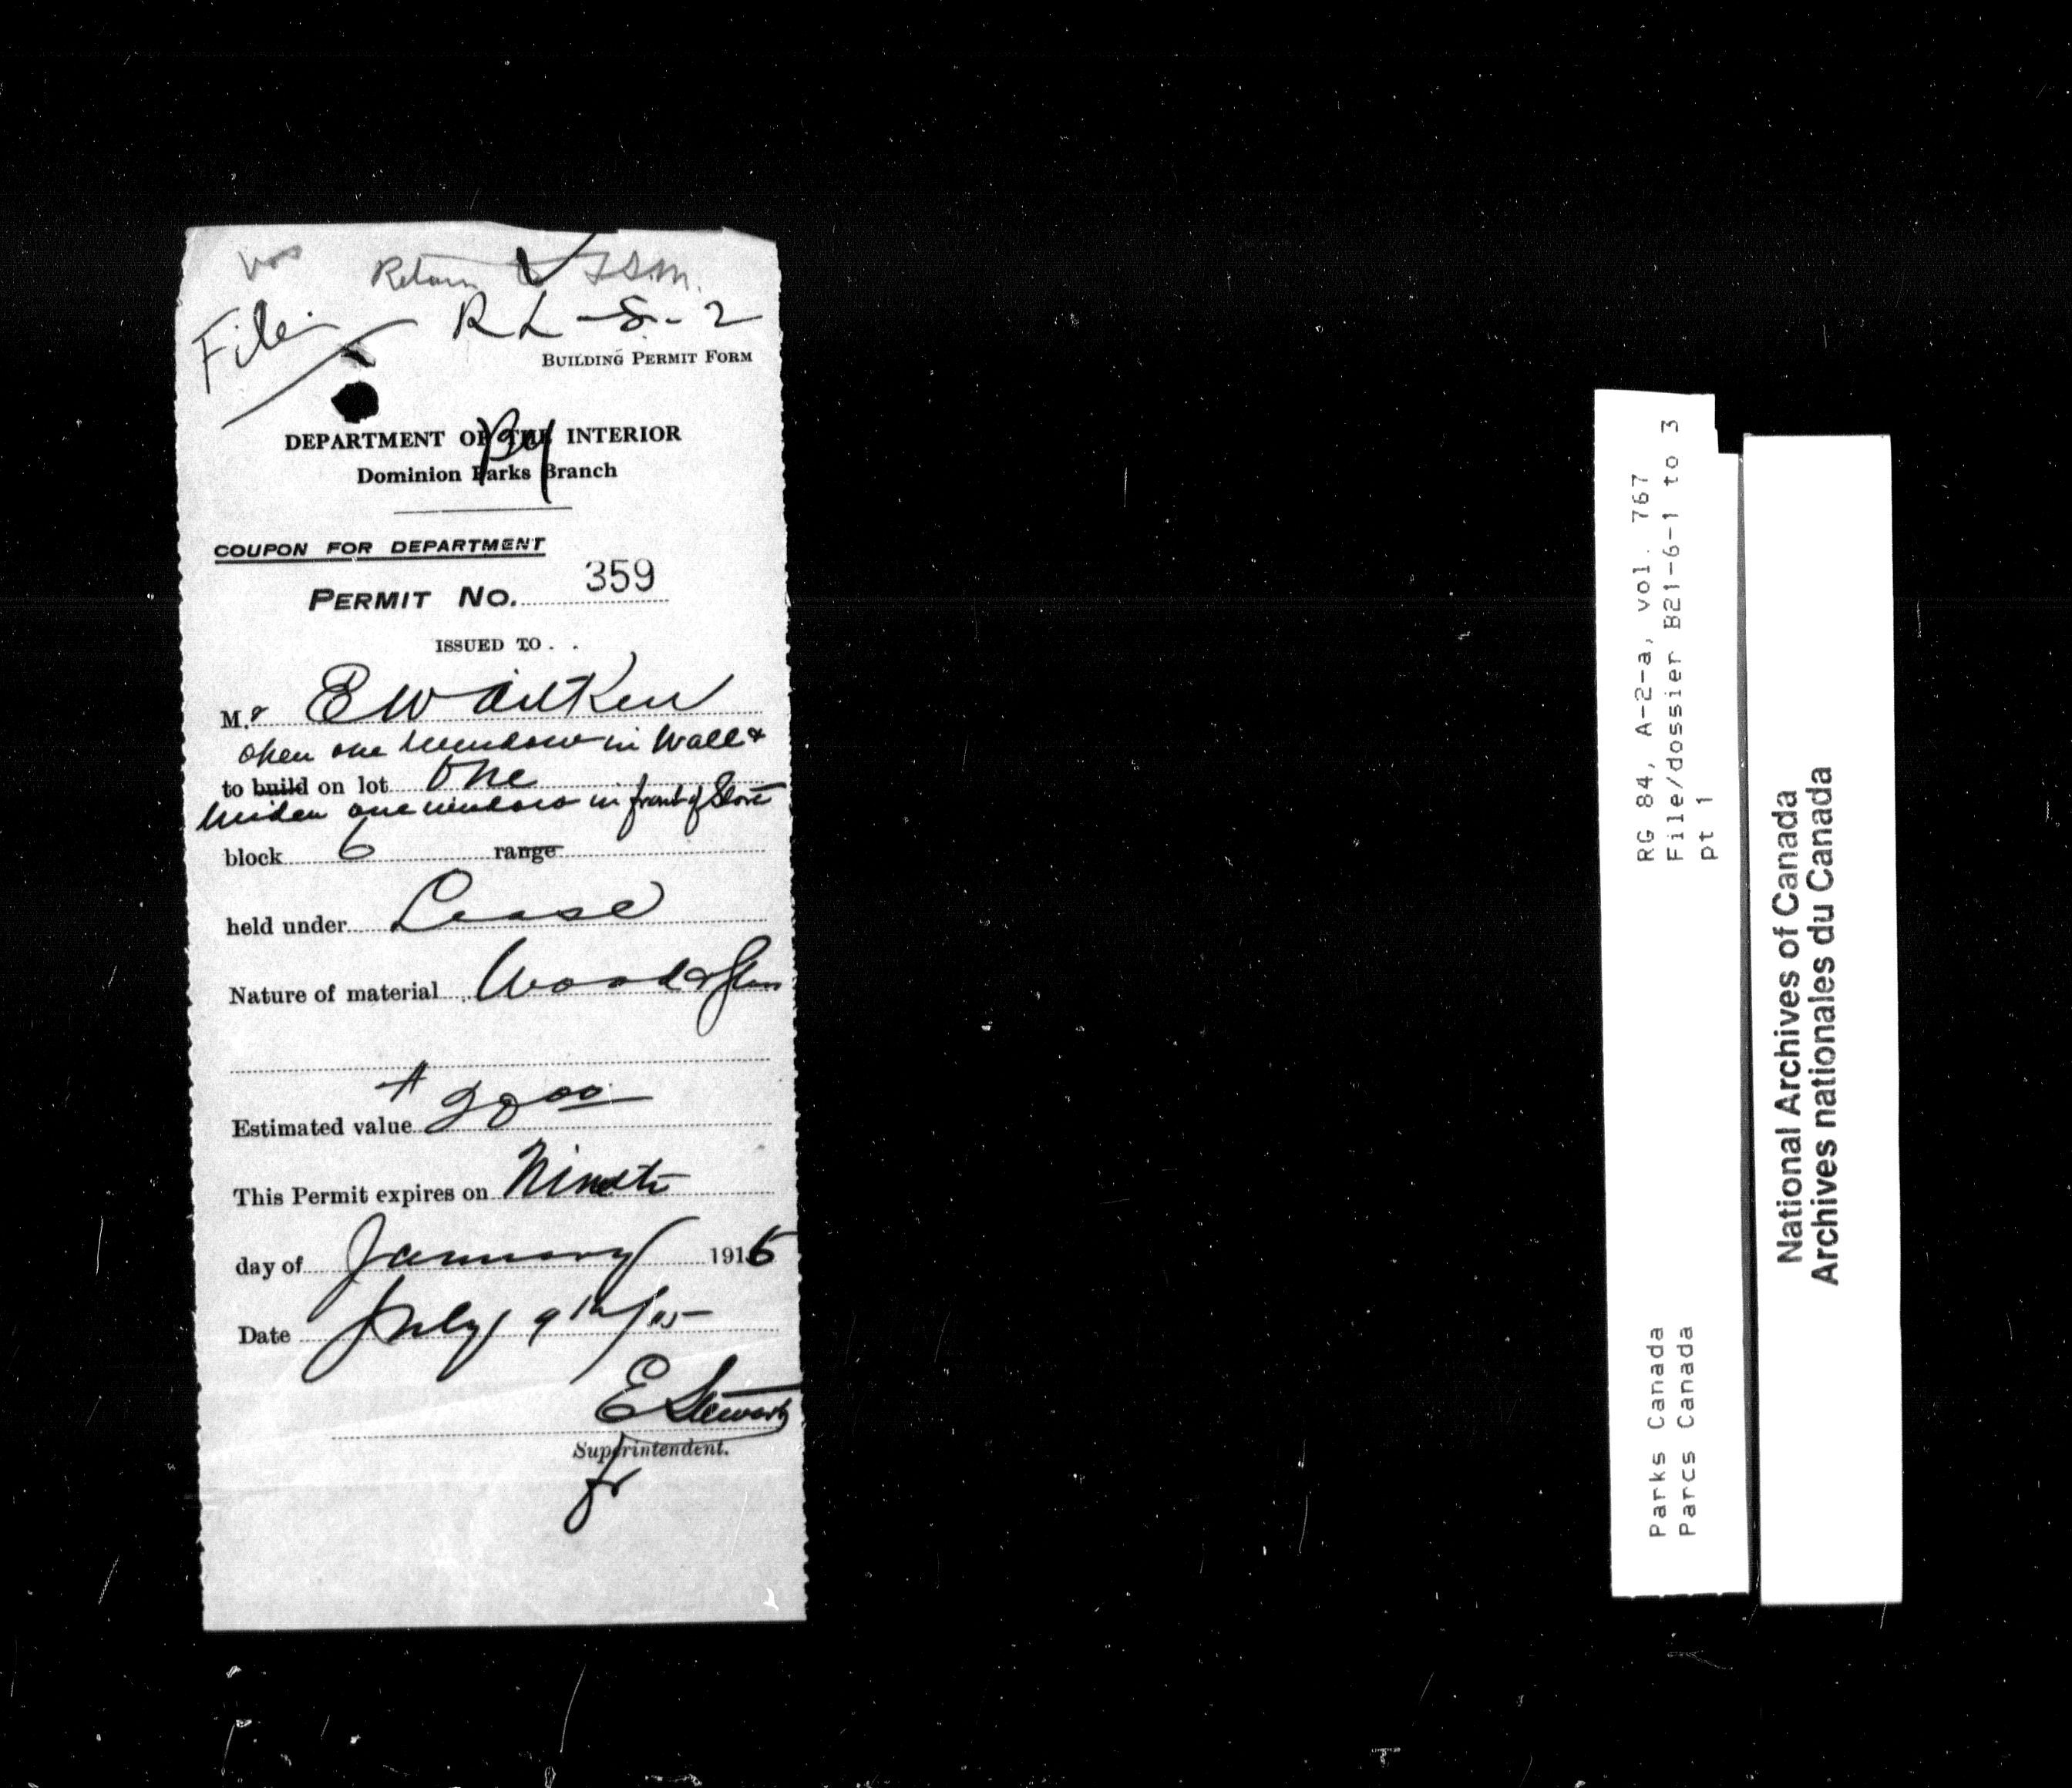 Return to F.S.M.
File RL-8-2
BUILDING PERMIT FORM
DEPARTMENT OF THE INTERIOR
Dominion Parks Branch
COUPON FOR DEPARTMENT
PERMIT No. 359
ISSUED TO . .
Mr E W Aitken
open one window in Wall &
to build on lot One
widen one window in front of Store
block 6 range
held under Lease
Nature of material Wood & glass
Estimated value $ 00
This Permit expires on Ninth
day of January 1916
Date July 9th/15
E Stewart
Superintendent.
fr
RG 84, A-2-a, vol. 767
File/dossier B21-6-1 to 3
pt 1
Parks Canada
Parcs Canada
National Archives of Canada
Archives nationales du Canada